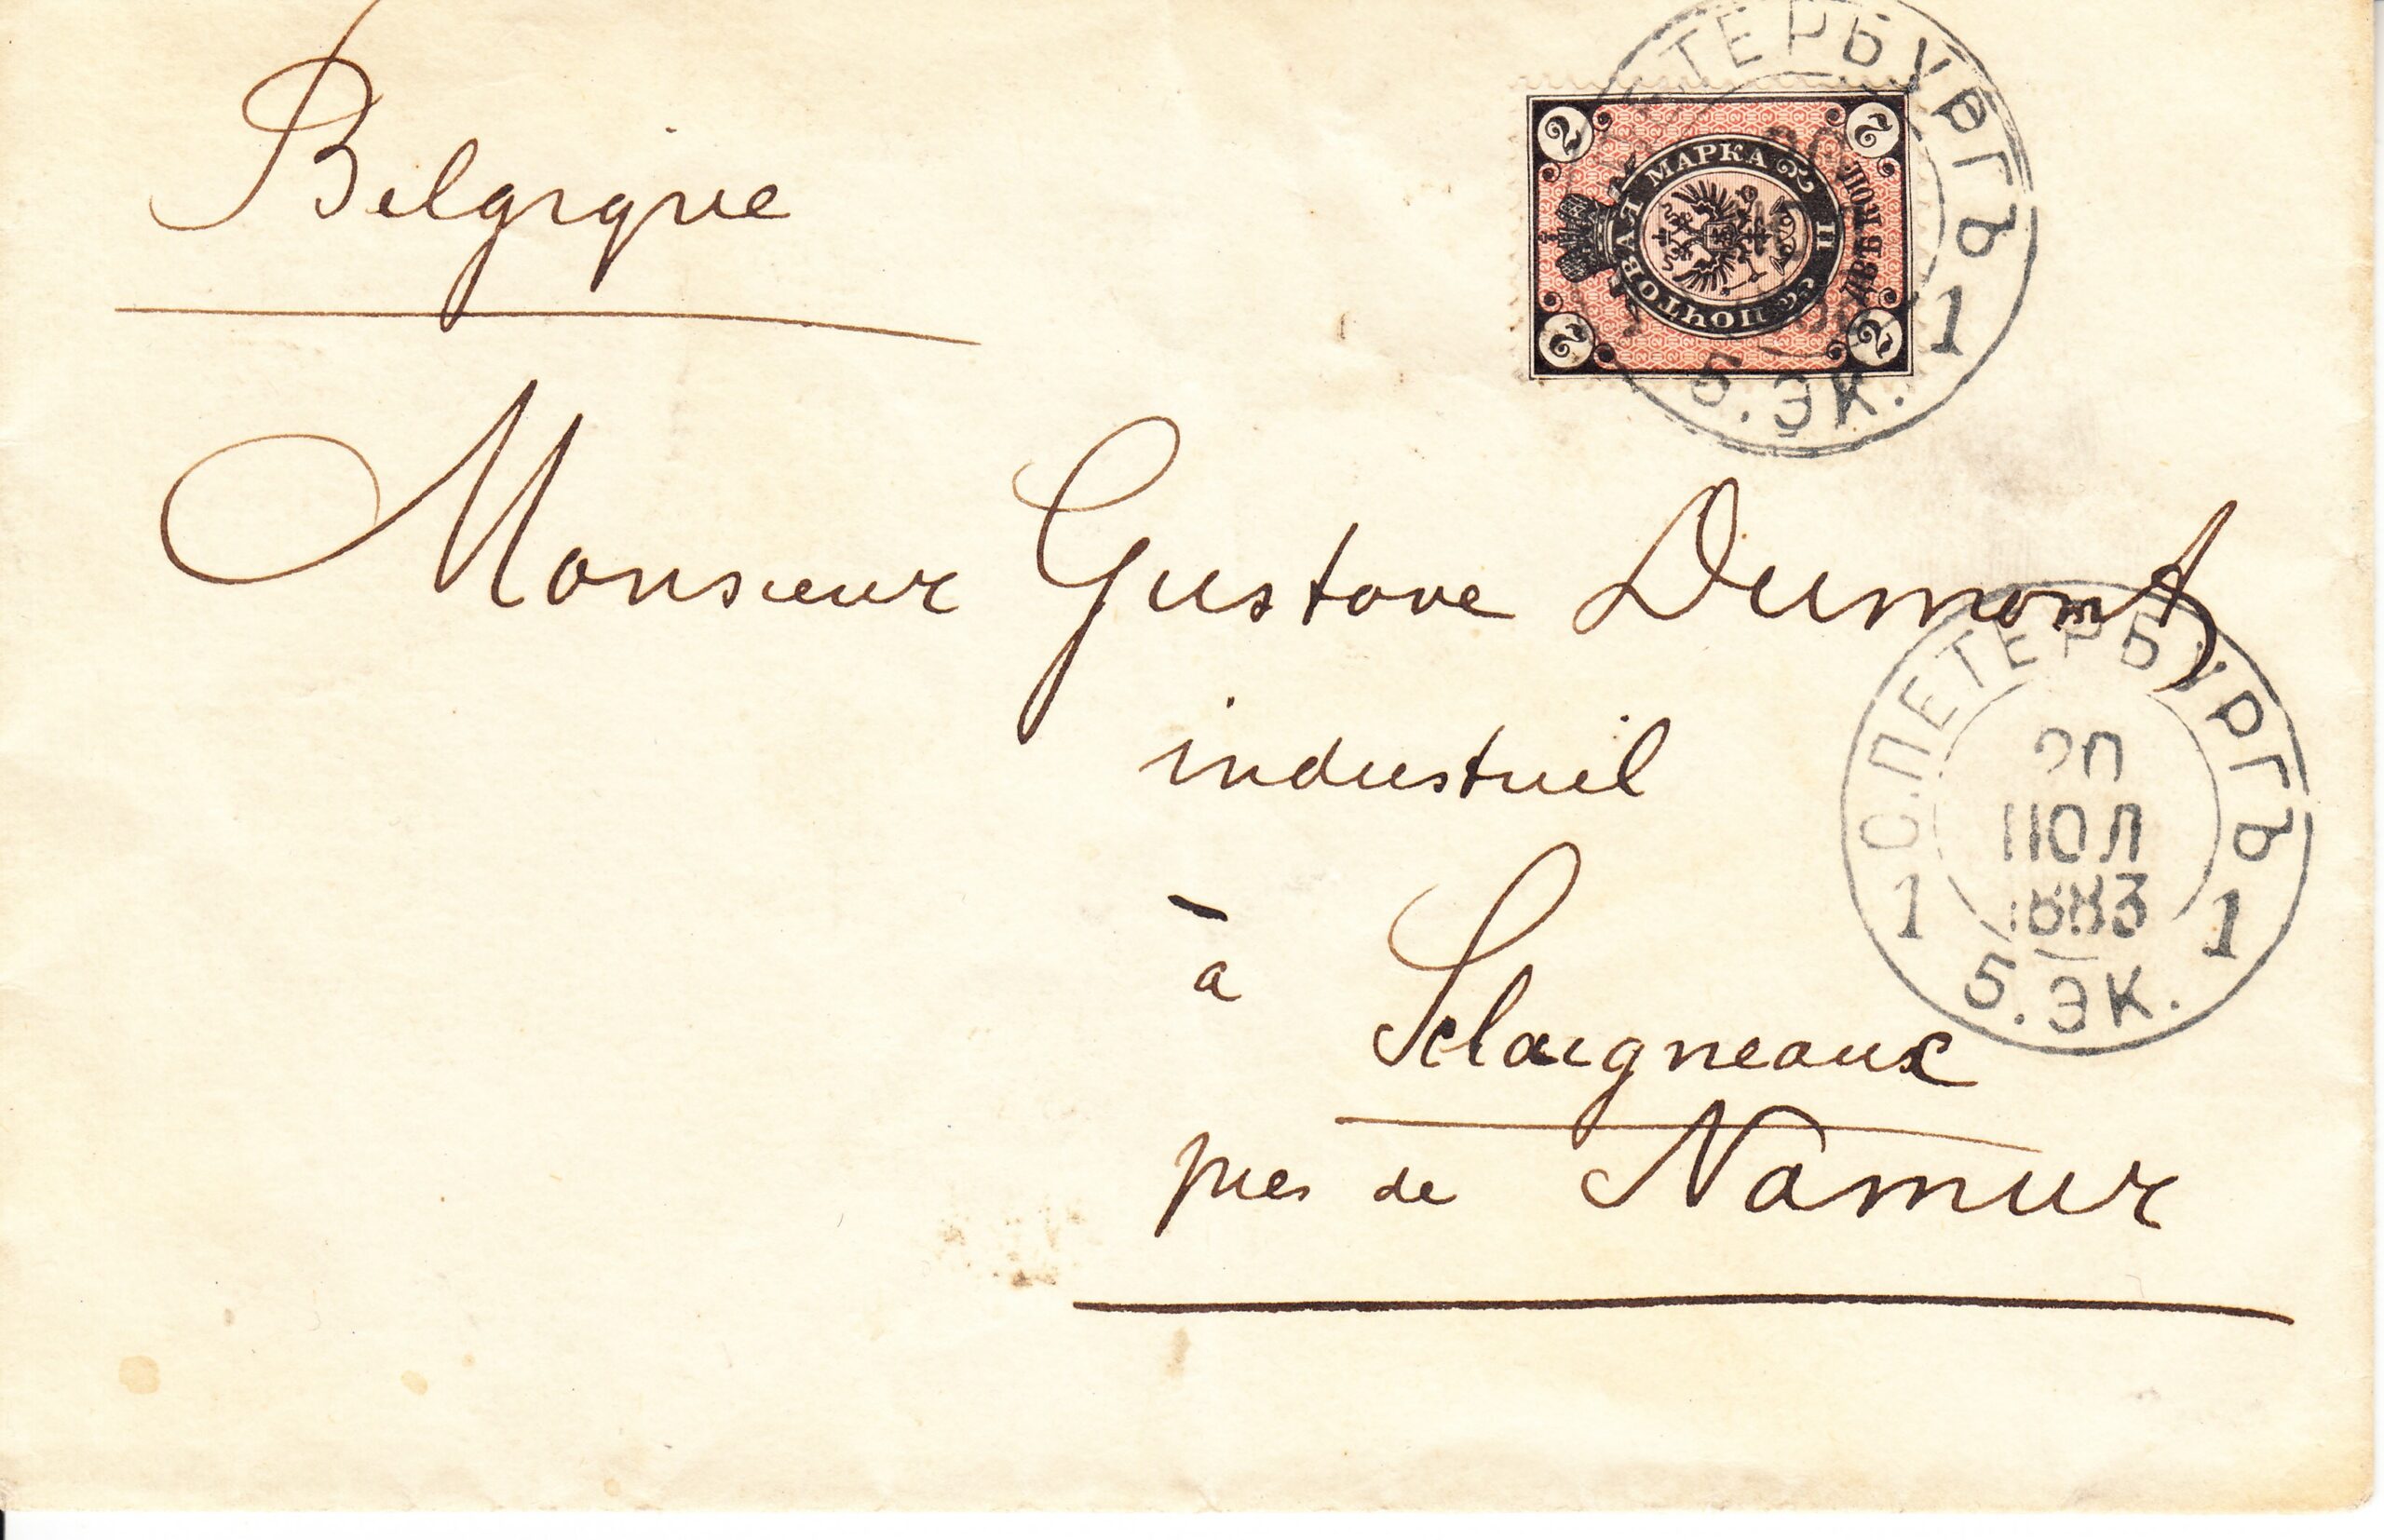 Belgique
2 2
ПОЧТОВАЯ МАРКА
ДВѢ КОП.
2 2
ТЕРБУРГЪ
1
5.ЭК.
Monsieur Gustave Dumont
industriel
à Sclaigneaux
près de Namur
С.ПЕТЕРБУРГЪ
20
ІЮЛ
1883
1 1
5.ЭК.